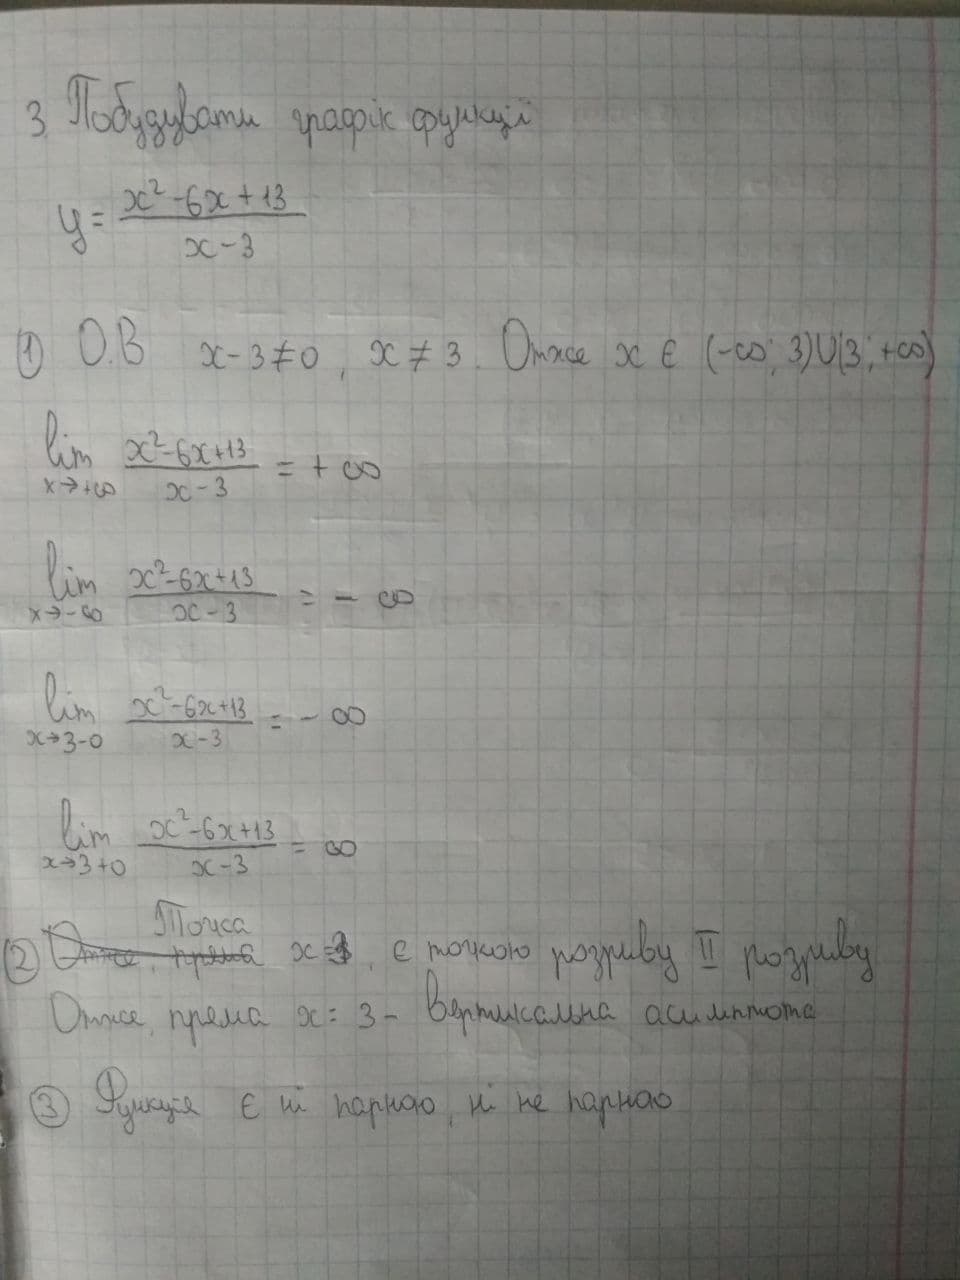 3. Побудувати графік функції
y = (x² - 6x + 13) / (x - 3)
① О.В x - 3 ≠ 0, x ≠ 3. Отже x ∈ (-∞; 3)∪(3; +∞)
lim x→+∞ (x² - 6x + 13) / (x - 3) = + ∞
lim x→-∞ (x² - 6x + 13) / (x - 3) = - ∞
lim x→3-0 (x² - 6x + 13) / (x - 3) = - ∞
lim x→3+0 (x² - 6x + 13) / (x - 3) = ∞
② Точка x = 3, є точкою розриву II розриву
Отже, пряма x = 3 - вертикальна асимптота
③ Функція є ні парною, ні не парною